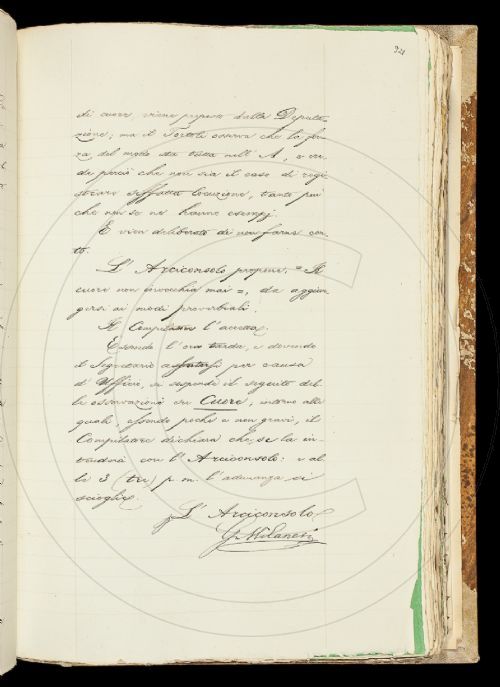 921
di cuore, viene proposto dalla Deputa-
zione; ma il Tortoli osserva che la for-
za del modo sta tutta nell'A, e cre-
de perciò che non sia il caso di regi-
strare siffatta locuzione, tanto più
che non se ne hanno esempj.
E vien deliberato di non farne con-
to.
L'Arciconsolo propone, = Il
cuore non invecchia mai =, da aggiun-
gersi ai modi proverbiali.
Il Compilatore l'accetta.
Essendo l'ora tarda, e dovendo
il Segretario assentarsi per causa
d'Ufficio, si sospende il seguito del-
le osservazioni su Cuore, intorno alle
quali, essendo poche e non gravi, il
Compilatore dichiara che se la in-
tenderà con l'Arciconsolo: e al-
le 3 (tre) p. m. l'adunanza si
scioglie.
L'Arciconsolo
G. Milanesi